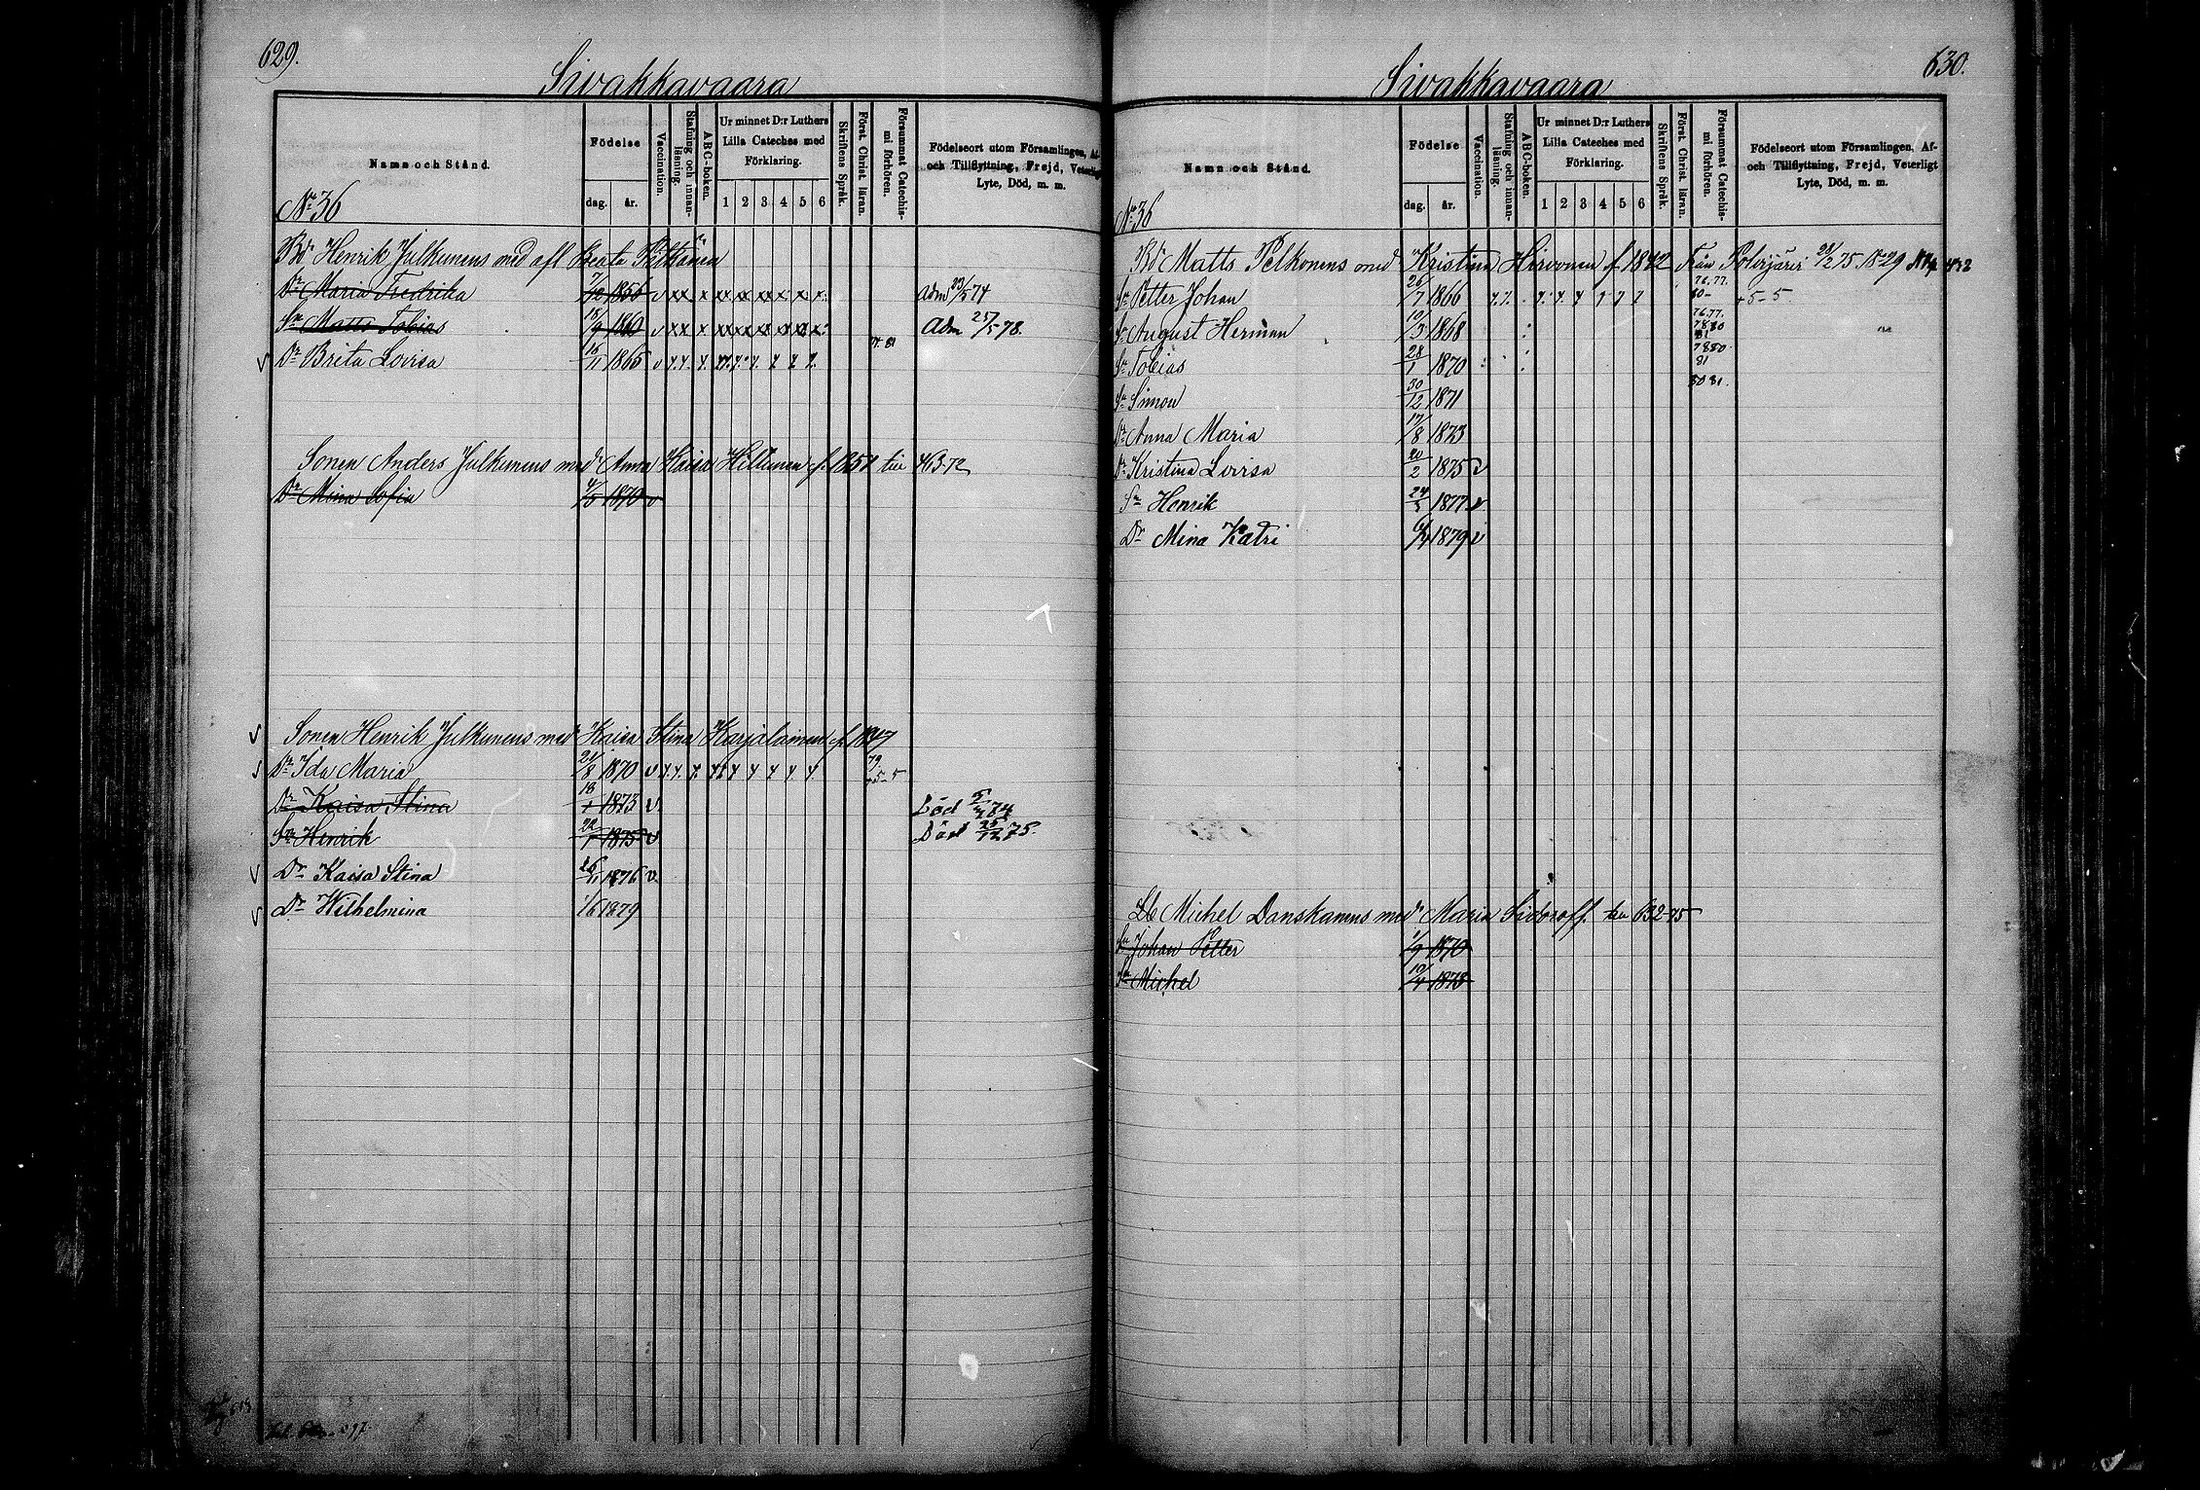 629.
Sivakkavaara
Namn och Stånd.
Födelse
dag. år.
Vaccination.
Stafning och innanläsning.
ABC-boken.
Ur minnet D:r Luthers Lilla Cateches med Förklaring.
1 2 3 4 5 6
Skriftens Språk.
Först. Christ. läran.
Försummat Catechismi förhören.
Födelseort utom Församlingen, Af- och Tillflyttning, Frejd, Veterligt Lyte, Död, m. m.
No 36
Bd Henrik Julkunens med afl Beata Pitkänen
Dr Maria Fredrika 7/12 1856 v xx x xx x x x x x Adm 23/5 74
Sn Matts Tobias 18/9 1860 v xx x Adm 25/5 78.
Dr Brita Lovisa 16/11 1865 v
Sonen Anders Julkunens med Anna Kaisa Hiltunen f. 1851 till 463-72
Dr Mina Sofia 4/5 1870 v
Sonen Henrik Julkunens med Kaisa Stina Karjalainen f 1847
Dr Ida Maria 21/8 1870 v 79. +5-5
Dr Kaisa Stina 18/1 1873 v Död 74
Sn Henrik 22/7 1875 v Död 25/12 75.
Dr Kaisa Stina 26/11 1876 v
Dr Wilhelmina 1/6 1879
630.
Sivakkavaara
Namn och Stånd.
Födelse
dag. år.
Vaccination.
Stafning och innanläsning.
ABC-boken.
Ur minnet D:r Luthers Lilla Cateches med Förklaring.
1 2 3 4 5 6
Skriftens Språk.
Först. Christ. läran.
Försummat Catechismi förhören.
Födelseort utom Församlingen, Af- och Tillflyttning, Frejd, Veterligt Lyte, Död, m. m.
No 36
Bd Matts Pelkonens med Kristina Hirvonen f 1842 Från Polvijärvi 28/2 75 No 29
Sn Petter Johan 26/7 1866 76.77. 80- +5-5
Sn August Herman 10/3 1868 76.77. 7880 81
Sn Tobias 28/1 1870 7880. 81
Sn Simon 30/12 1871 80 81.
Dr Anna Maria 17/8 1873
Dr Kristina Lovisa 20/2 1875 v
Sn Henrik 24/3 1877 v
Dr Mina Katri 1879 v
Lb Michel Danskanens med Maria Sidoroff. till 632-75
Sn Johan Petter 1/9 1870
Sn Michel 10/4 1873